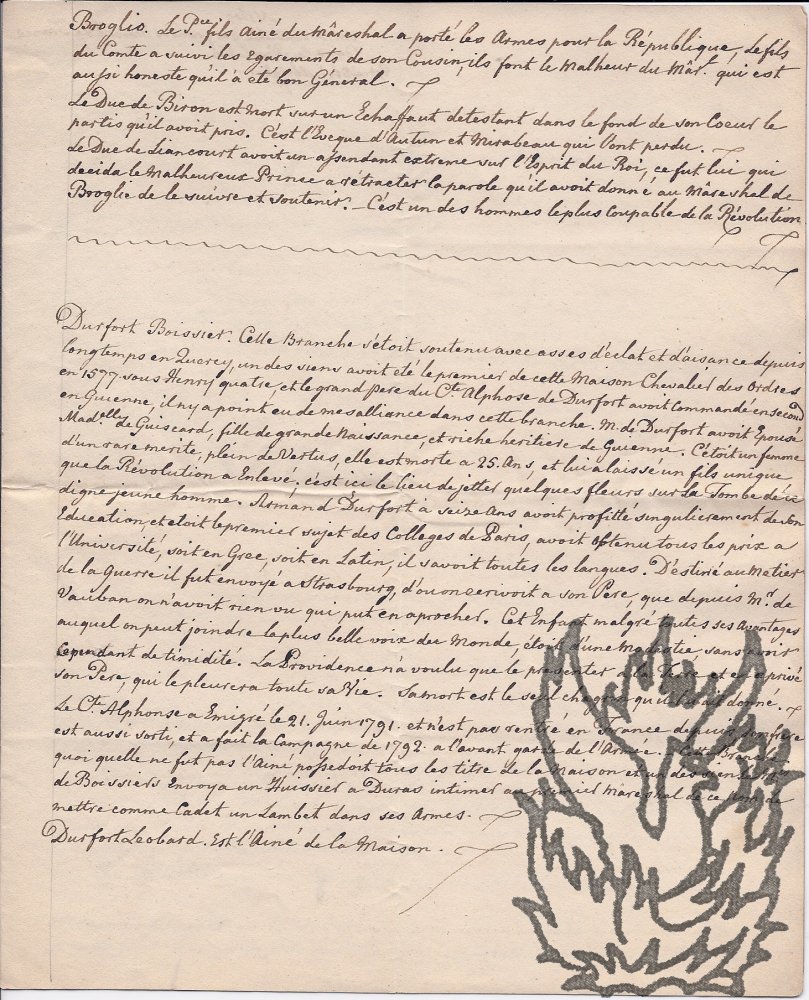 Broglio. Le P.ce fils Ainé du Mâreshal a porté les Armes pour la République, Le fils
du Comte a suivi les Egarements de son Cousin, ils font le Malheur du Mâr.l qui est
aussi honeste qu'il à été bon Général.
Le Duc de Biron est Mort sur un Echaffaut détestant dans le fond de son Coeur le
partis qu'il avoit pris. C'est l'Eveque d'Autun et Mirabeau qui l'ont perdu.
Le Duc de Liancourt avoit un assendant extreme sur l'Esprit du Roi, ce fut lui qui
decida le Malheureux Prince a rétracter la parole qu'il avoit donné au Mâreshal de
Broglie de le suivre et soutenir. C'est un des hommes le plus Coupable de la Révolution
Durfort Boissier. Cette Branche s'étoit soutenu avec asses d'éclat et d'aisance depuis
longtemps en Quercy, un des siens avoit été le premier de cette Maison Chevalier des Ordres
en 1577 sous Henry quatre, et le grand pere du C.te Alphose de Durfort avoit Commandé en second
en Guienne, il n'y a point eu de mesalliance dans cette branche. M. de Durfort avoit Epousé
Mad.elle de Guiscard, fille de grande Naissance, et riche heritiere de Guienne. C'étoit un femme
d'un rare merite, plein de Vertus, elle est morte a 25. Ans, et lui a laisse un fils unique
que la Révolution a Enlevé. c'est ici le lieu de jetter quelques fleurs sur la Tombe de ce
digne jeune homme. Armand Durfort à seize Ans avoit profitté singulierement de son
Education, et étoit le premier sujet des Colleges de Paris, avoit obtenu tous les prix a
l'Université, soit en Grec, soit en Latin, il savoit toutes les langues. D'estiné au Metier
de la Guerre il fut envoyé a Strasbourg, d'ou on ecrivoit a son Pere, que depuis M.r de
Vauban on n'avoit rien vu qui put en aprocher. Cet Enfant malgré toutes ses Avantages
auquel on peut joindre la plus belle voix du Monde, étoit d'une Modestie sans avoir
Cependant de timidité. La Providence n'a voulu que le presenter a la Terre et en a privé
son Pere, qui le pleurera toute sa Vie. Sa mort est le seul chagrin qu'il lui ait donné.
Le C.te Alphonse a Emigré le 21. Juin 1791. et n'est pas rentré en France depuis. Son frere
est aussi sorti, et a fait la Campagne de 1792. a l'avant garde de l'Armée. Cette Branche
quoi quelle ne fut pas l'Ainé possedoit tous les titre de la Maison et un des siens le M.is
de Boissiers Envoya un Huissier a Duras intimer au premier Mareshal de ce Nom de
mettre comme Cadet un Lambet dans ses Armes.
Durfort Leobard. Est l'Ainé de la Maison.